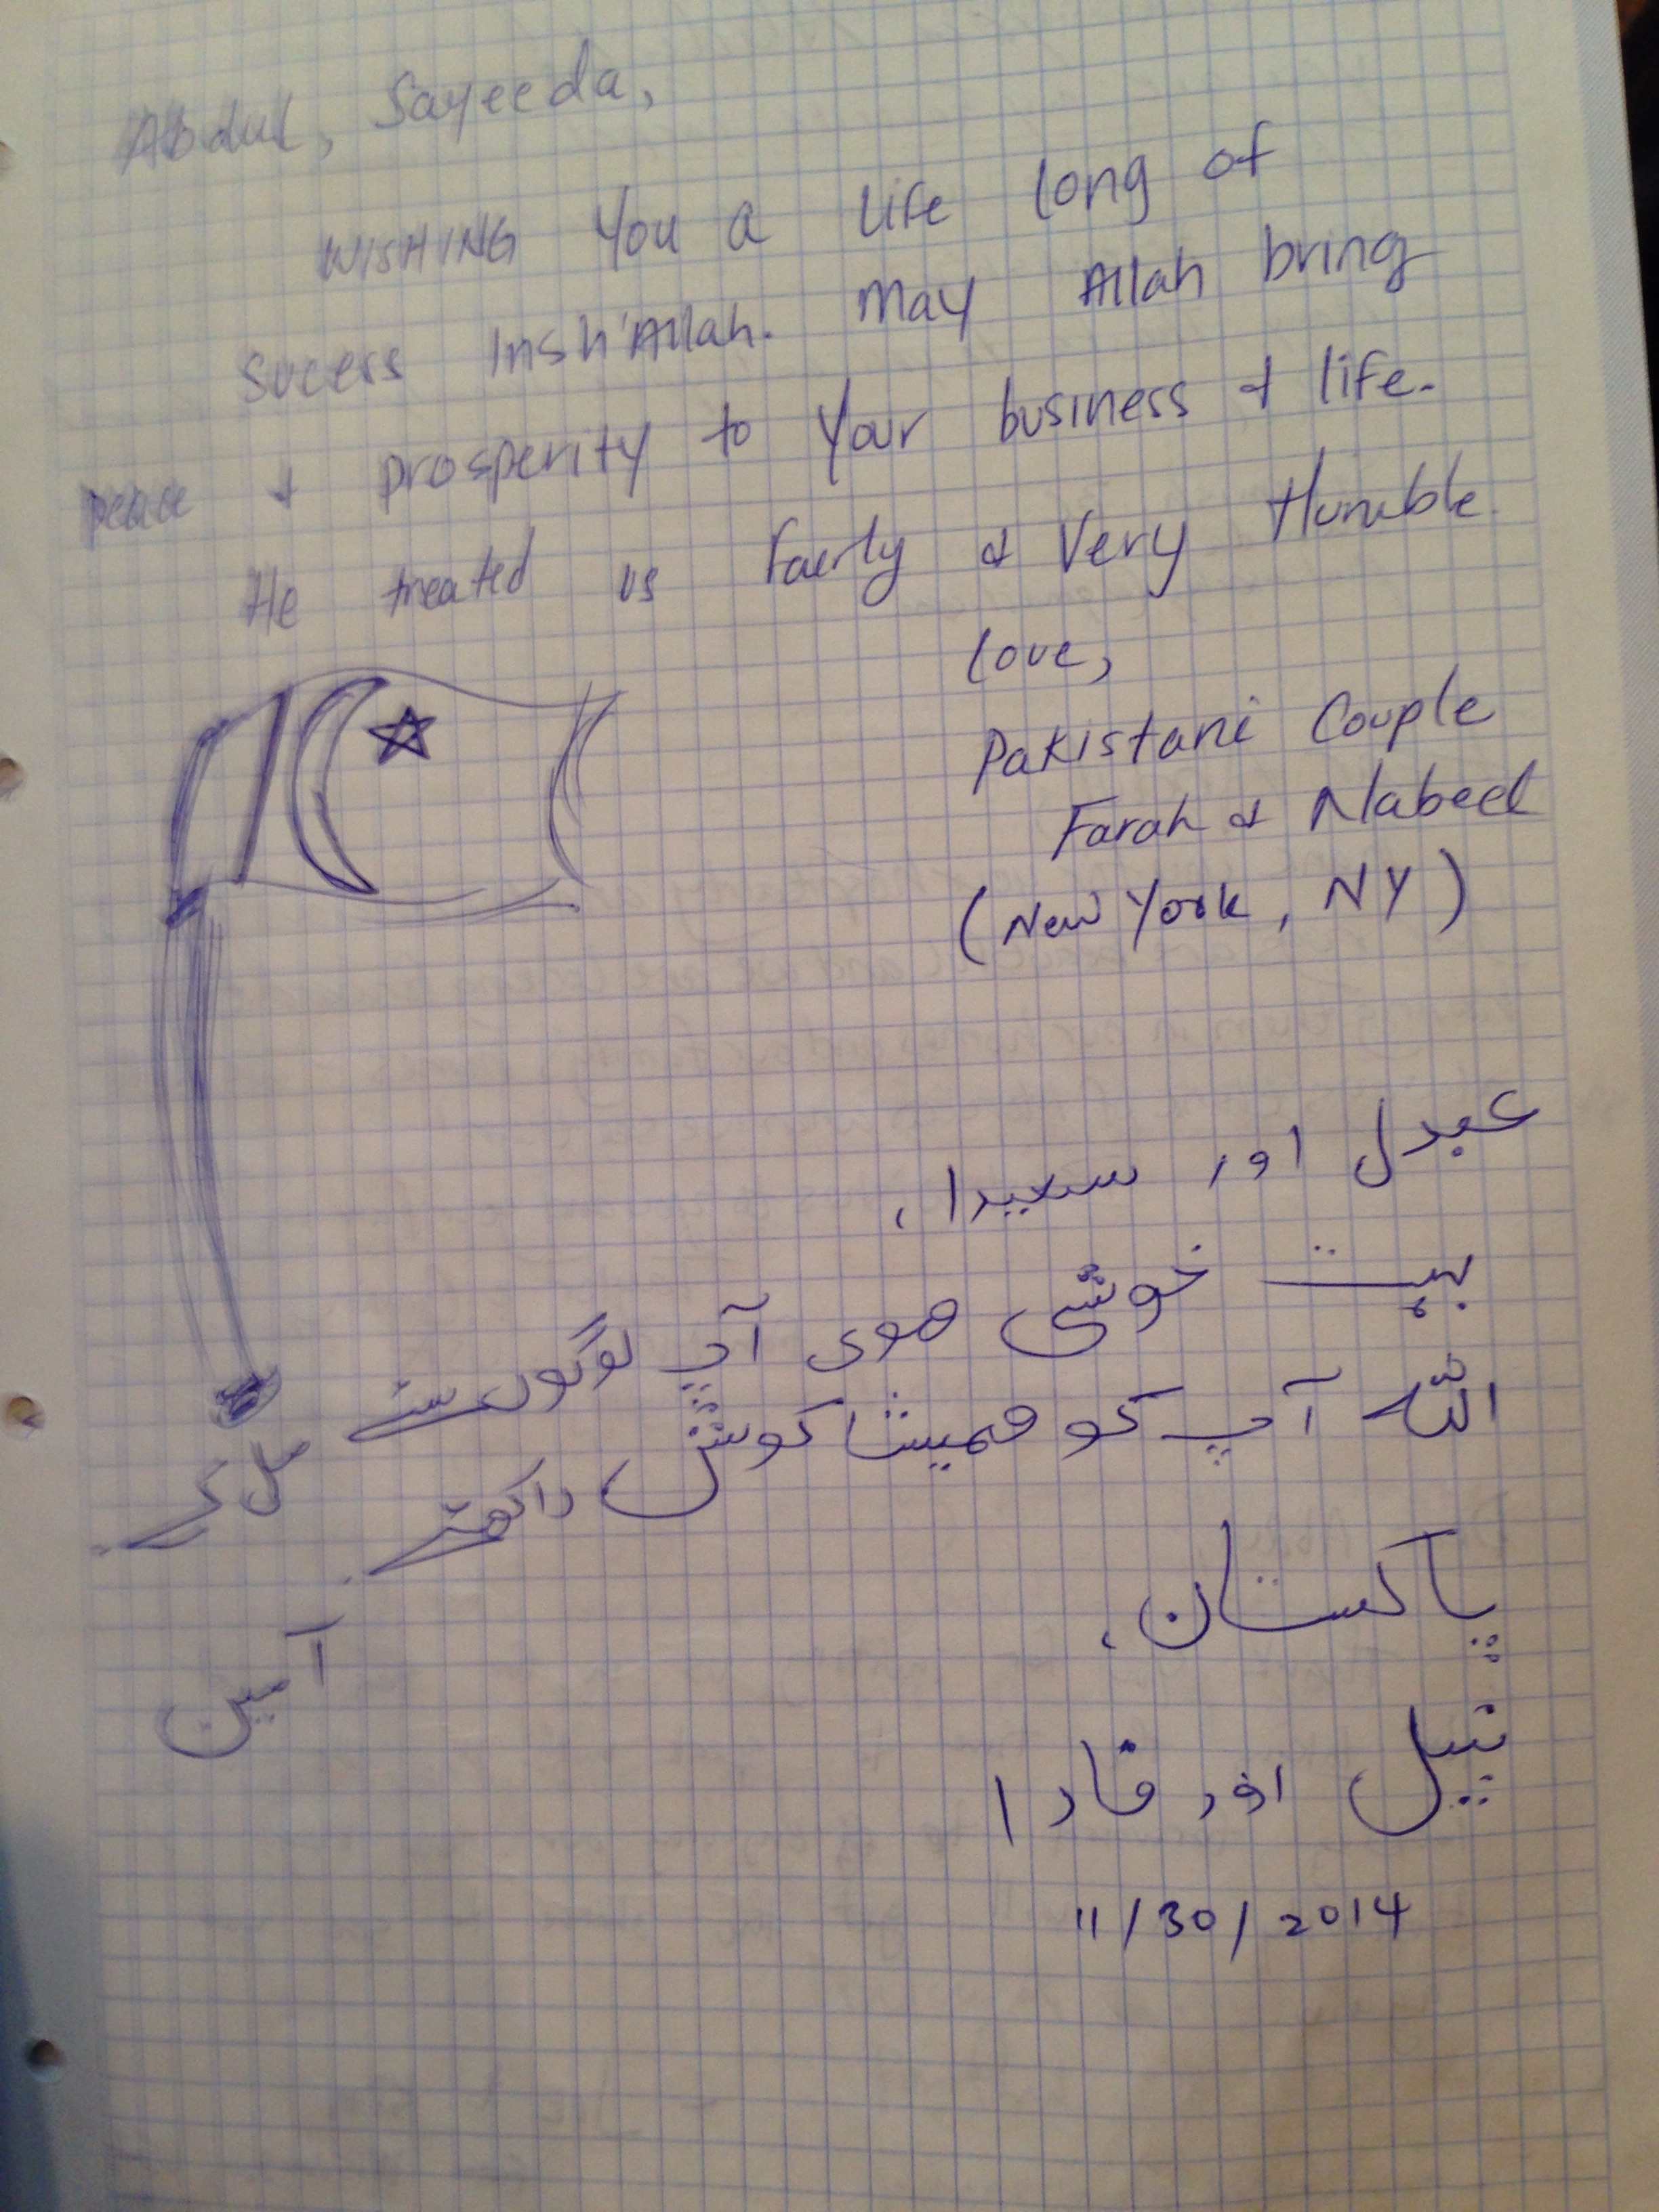 Abdul, Sayeeda,
WISHING You a life long of
sucess Insh'Allah. May Allah bring
peace & prosperity to your business & life.
He treated us fairly & Very Humble.
love,
Pakistani Couple
Farah & Nabeel
(New York, NY)
عبدل اور سعیدا،
بہت خوشی ھوی آپ لوگوں سے
مل کے
اللہ آپ کو ھمیشا کوش راکھے
آمین
پاکستان،
اور فارا
11/30/2014